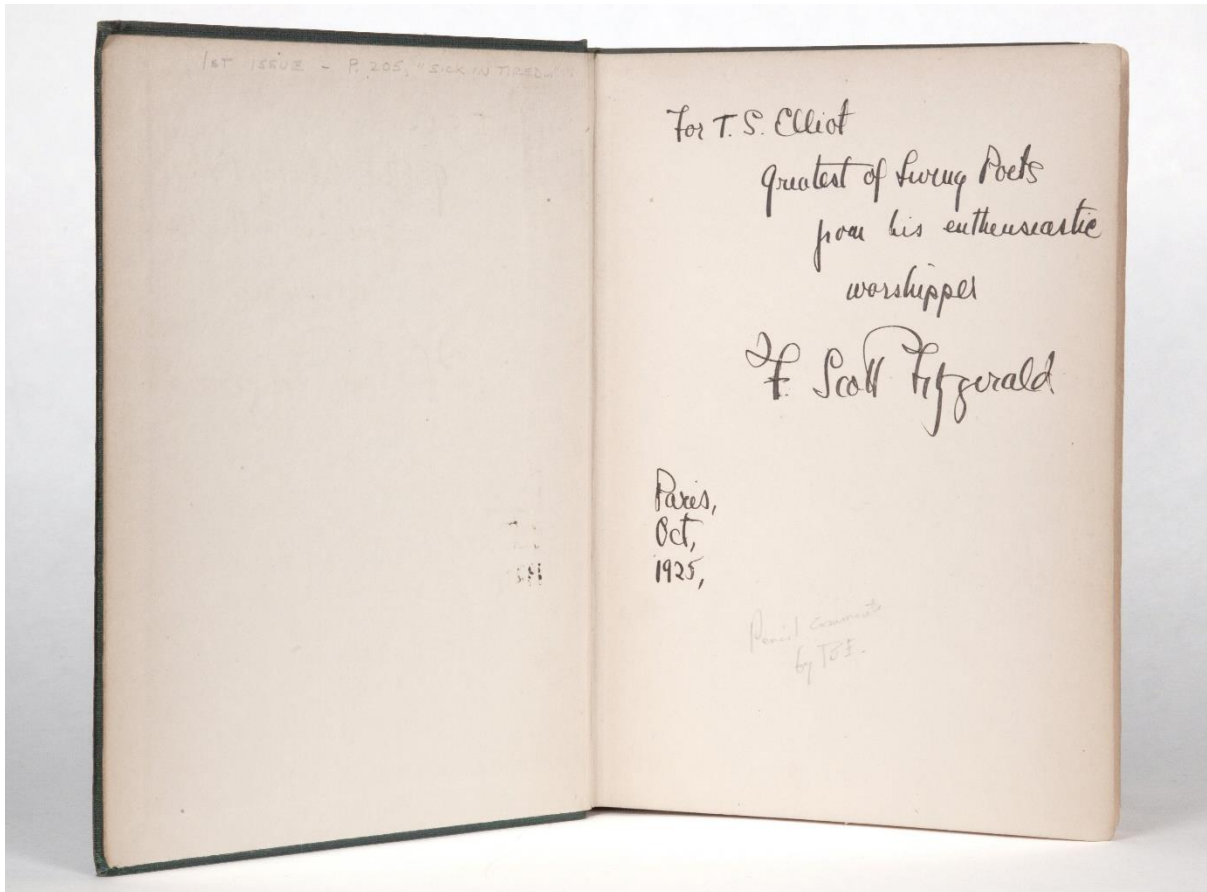 1ST ISSUE - P. 205, "SICK IN TIRED"
For T. S. Elliot
Greatest of Living Poets
from his entheusiastic
worshipper
F. Scott Fitzgerald
Paris,
Oct,
1925,
Pencil comments
by TSE.